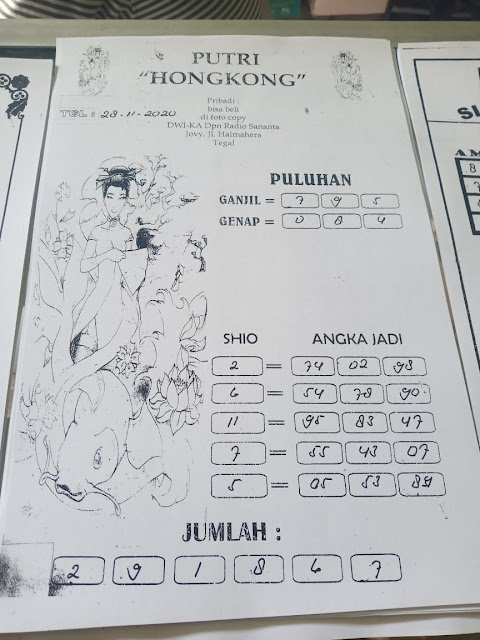 PUTRI
"HONGKONG"
Pribadi :
bisa beli
di foto copy
DWI-KA Dpn Radio Sananta
Jovy, Jl. Halmahera
Tegal
TGL : 28-11-2020
PULUHAN
GANJIL = 7 9 5
GENAP = 0 8 4
SHIO ANGKA JADI
2 = 74 02 98
6 = 54 78 90
11 = 95 83 47
7 = 55 43 07
5 = 05 53 89
JUMLAH :
2 9 1 8 6 7